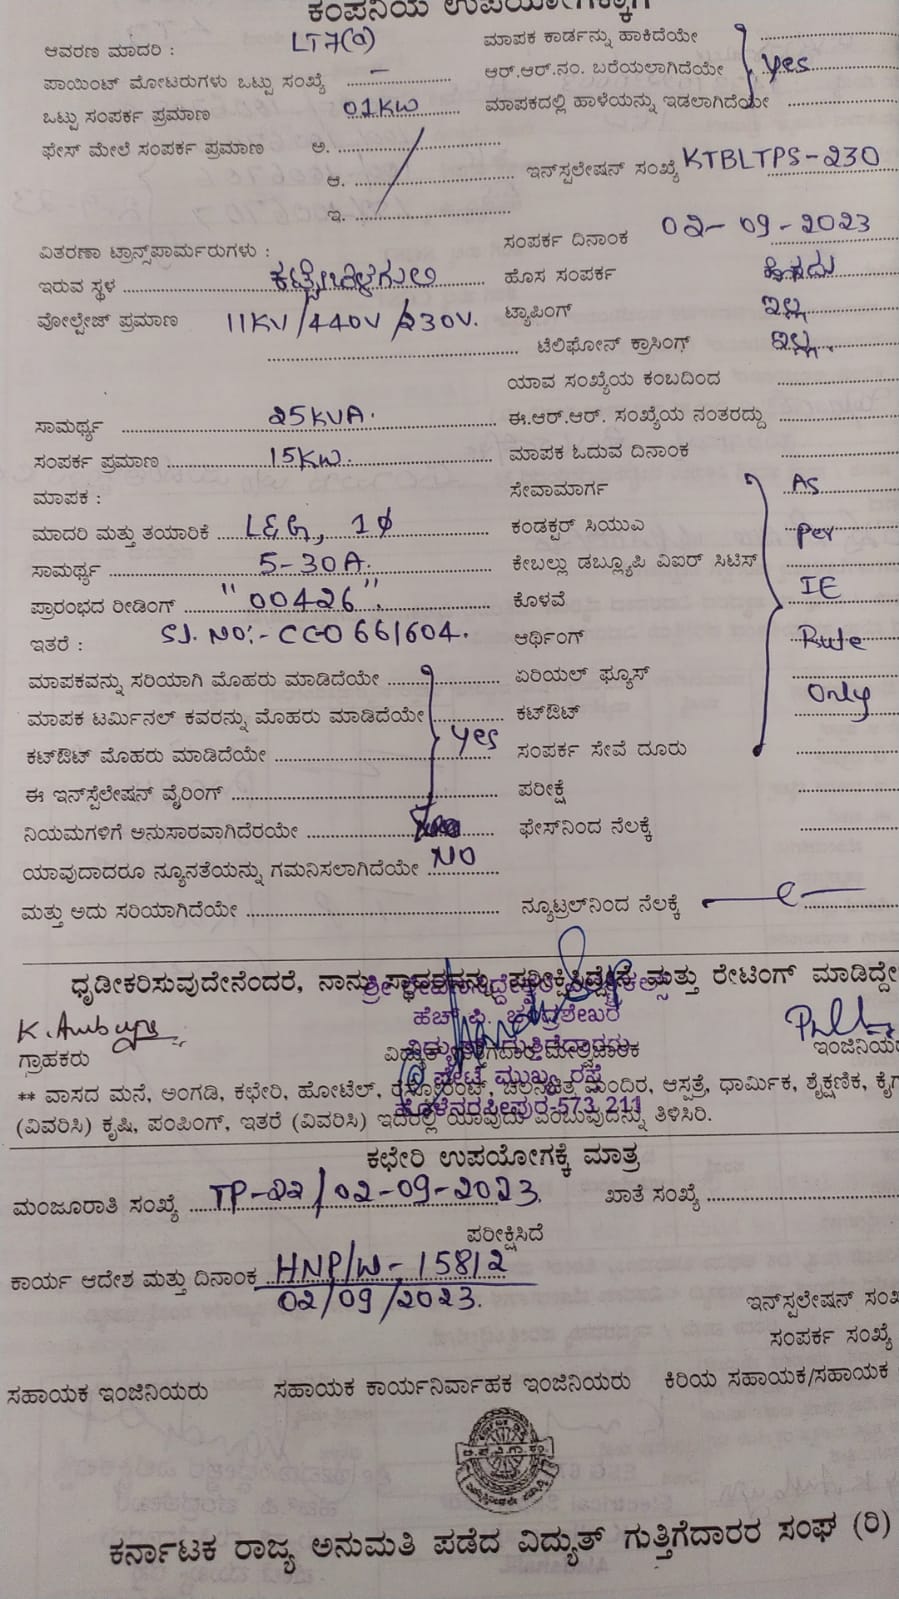 ಕಂಪನಿಯ ಉಪಯೋಗಕ್ಕಾಗಿ
ಆವರಣ ಮಾದರಿ : LT7(a)
ಪಾಯಿಂಟ್ ಮೋಟರುಗಳು ಒಟ್ಟು ಸಂಖ್ಯೆ —
ಒಟ್ಟು ಸಂಪರ್ಕ ಪ್ರಮಾಣ 01KW
ಫೇಸ್ ಮೇಲೆ ಸಂಪರ್ಕ ಪ್ರಮಾಣ ಅ.
ಆ.
ಇ.
ವಿತರಣಾ ಟ್ರಾನ್ಸ್‌ಪಾರ್ಮರುಗಳು :
ಇರುವ ಸ್ಥಳ
ವೋಲ್ಟೇಜ್ ಪ್ರಮಾಣ 11KV/440V/230V.
ಸಾಮರ್ಥ್ಯ 25KVA.
ಸಂಪರ್ಕ ಪ್ರಮಾಣ 15KW.
ಮಾಪಕ :
ಮಾದರಿ ಮತ್ತು ತಯಾರಿಕೆ L&G, 1φ
ಸಾಮರ್ಥ್ಯ 5-30A.
ಪ್ರಾರಂಭದ ರೀಡಿಂಗ್ "00426".
ಇತರೆ : Sl. NO:- CCO 661604.
ಮಾಪಕವನ್ನು ಸರಿಯಾಗಿ ಮೊಹರು ಮಾಡಿದೆಯೇ
ಮಾಪಕ ಟರ್ಮಿನಲ್ ಕವರನ್ನು ಮೊಹರು ಮಾಡಿದೆಯೇ
ಕಟ್‌ಔಟ್ ಮೊಹರು ಮಾಡಿದೆಯೇ yes
ಈ ಇನ್‌ಸ್ಪೆಲೇಷನ್ ವೈರಿಂಗ್
ನಿಯಮಗಳಿಗೆ ಅನುಸಾರವಾಗಿದೆರಯೇ
ಯಾವುದಾದರೂ ನ್ಯೂನತೆಯನ್ನು ಗಮನಿಸಲಾಗಿದೆಯೇ NO
ಮತ್ತು ಅದು ಸರಿಯಾಗಿದೆಯೇ
ಮಾಪಕ ಕಾರ್ಡನ್ನು ಹಾಕಿದೆಯೇ
ಆರ್.ಆರ್.ನಂ. ಬರೆಯಲಾಗಿದೆಯೇ yes
ಮಾಪಕದಲ್ಲಿ ಹಾಳೆಯನ್ನು ಇಡಲಾಗಿದೆಯೇ
ಇನ್‌ಸ್ಪಲೇಷನ್ ಸಂಖ್ಯೆ KTBLTPS-230
ಸಂಪರ್ಕ ದಿನಾಂಕ 02-09-2023
ಹೊಸ ಸಂಪರ್ಕ
ಟ್ಯಾಪಿಂಗ್ ಇಲ್ಲ
ಟೆಲಿಫೋನ್ ಕ್ರಾಸಿಂಗ್ ಇಲ್ಲ.
ಯಾವ ಸಂಖ್ಯೆಯ ಕಂಬದಿಂದ
ಈ.ಆರ್.ಆರ್. ಸಂಖ್ಯೆಯ ನಂತರದ್ದು
ಮಾಪಕ ಓದುವ ದಿನಾಂಕ
ಸೇವಾಮಾರ್ಗ As
ಕಂಡಕ್ಟರ್ ಸಿಯುಎ Per
ಕೇಬಲ್ಲು ಡಬ್ಲ್ಯೂಪಿ ವಿಐರ್ ಸಿಟಿಸ್
ಕೊಳವೆ IE
ಆರ್ಥಿಂಗ್ Rule
ಏರಿಯಲ್ ಫ್ಯೂಸ್
ಕಟ್‌ಔಟ್ Only
ಸಂಪರ್ಕ ಸೇವೆ ದೂರು
ಪರೀಕ್ಷೆ
ಫೇಸ್‌ನಿಂದ ನೆಲಕ್ಕೆ
ನ್ಯೂಟ್ರಲ್‌ನಿಂದ ನೆಲಕ್ಕೆ
ಧೃಡೀಕರಿಸುವುದೇನೆಂದರೆ, ನಾನು ಪರೀಕ್ಷಿಸಿದ್ದೇನೆ ಮತ್ತು ರೇಟಿಂಗ್ ಮಾಡಿದ್ದೇ
ಹೆಚ್.ಪಿ. ಚಂದ್ರಶೇಖರ
ವಿದ್ಯುತ್ ಗುತ್ತಿಗೆದಾರರು
ಪೇಟೆ ಮುಖ್ಯ ರಸ್ತೆ
ಹೊಳೆನರಸೀಪುರ-573 211
ಗ್ರಾಹಕರು ಮೇಲ್ವಿಚಾರಕ ಇಂಜಿನಿಯ
** ವಾಸದ ಮನೆ, ಅಂಗಡಿ, ಕಛೇರಿ, ಹೋಟೆಲ್, ರೆಸ್ಟೋರೆಂಟ್, ಚಲನಚಿತ್ರ ಮಂದಿರ, ಆಸ್ಪತ್ರೆ, ಧಾರ್ಮಿಕ, ಶೈಕ್ಷಣಿಕ,
(ವಿವರಿಸಿ) ಕೃಷಿ, ಪಂಪಿಂಗ್, ಇತರೆ (ವಿವರಿಸಿ) ಇದರಲ್ಲಿ ಯಾವುದು ಎಂಬುವುದನ್ನು ತಿಳಿಸಿರಿ.
ಕಛೇರಿ ಉಪಯೋಗಕ್ಕೆ ಮಾತ್ರ
ಮಂಜೂರಾತಿ ಸಂಖ್ಯೆ TP-22/02-09-2023. ಖಾತೆ ಸಂಖ್ಯೆ
ಪರೀಕ್ಷಿಸಿದೆ
ಕಾರ್ಯ ಆದೇಶ ಮತ್ತು ದಿನಾಂಕ HNP/W-15812
02/09/2023.
ಇನ್‌ಸ್ಪಲೇಷನ್ ಸಂಖ
ಸಂಪರ್ಕ ಸಂಖ್ಯೆ
ಸಹಾಯಕ ಇಂಜಿನಿಯರು ಸಹಾಯಕ ಕಾರ್ಯನಿರ್ವಾಹಕ ಇಂಜಿನಿಯರು ಕಿರಿಯ ಸಹಾಯಕ/ಸಹಾಯಕ
ಕರ್ನಾಟಕ ರಾಜ್ಯ ಅನುಮತಿ ಪಡೆದ ವಿದ್ಯುತ್ ಗುತ್ತಿಗೆದಾರರ ಸಂಘ (ರಿ)